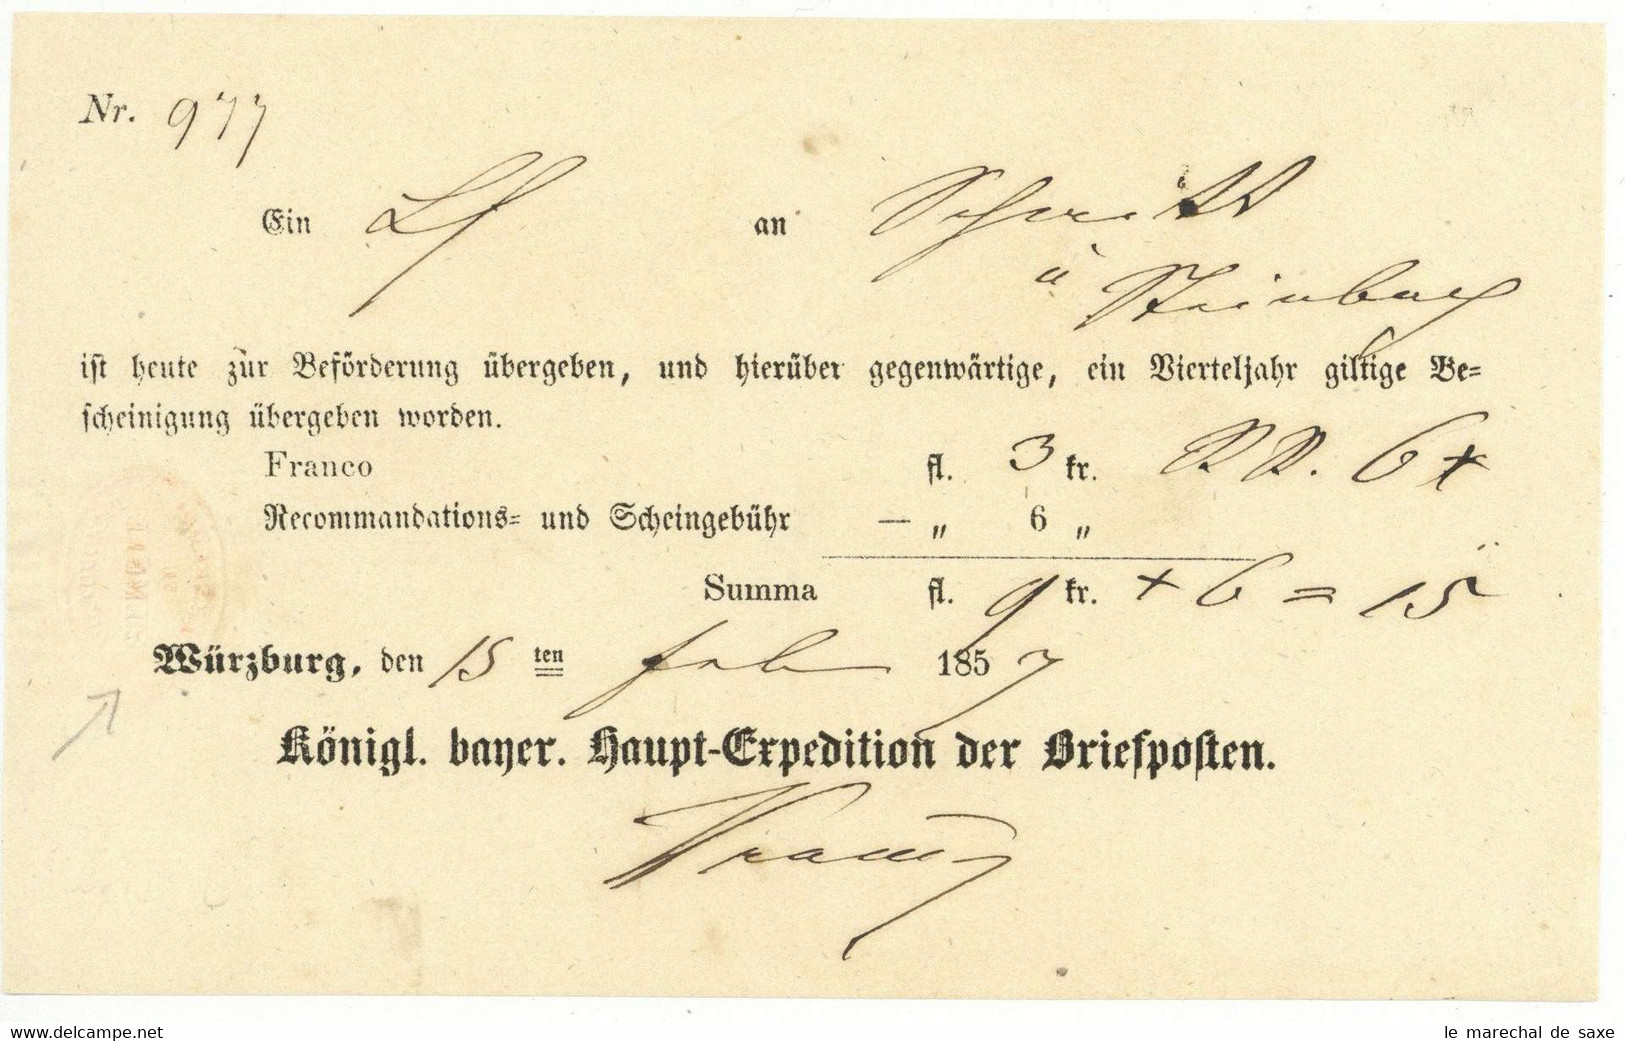 Nr. 977
Ein an
à Steinbach
ist heute zur Beförderung übergeben, und hierüber gegenwärtige, ein Vierteljahr giltige Be=
scheinigung übergeben worden.
Franco fl. 3 kr. RR. 6 x
Recommandations= und Scheingebühr — „ 6 „
Summa fl. 9 kr. + 6 = 15
Würzburg, den 15 ten Feb 1857
Königl. bayer. Haupt-Expedition der Briefposten.
www.delcampe.net
le marechal de saxe